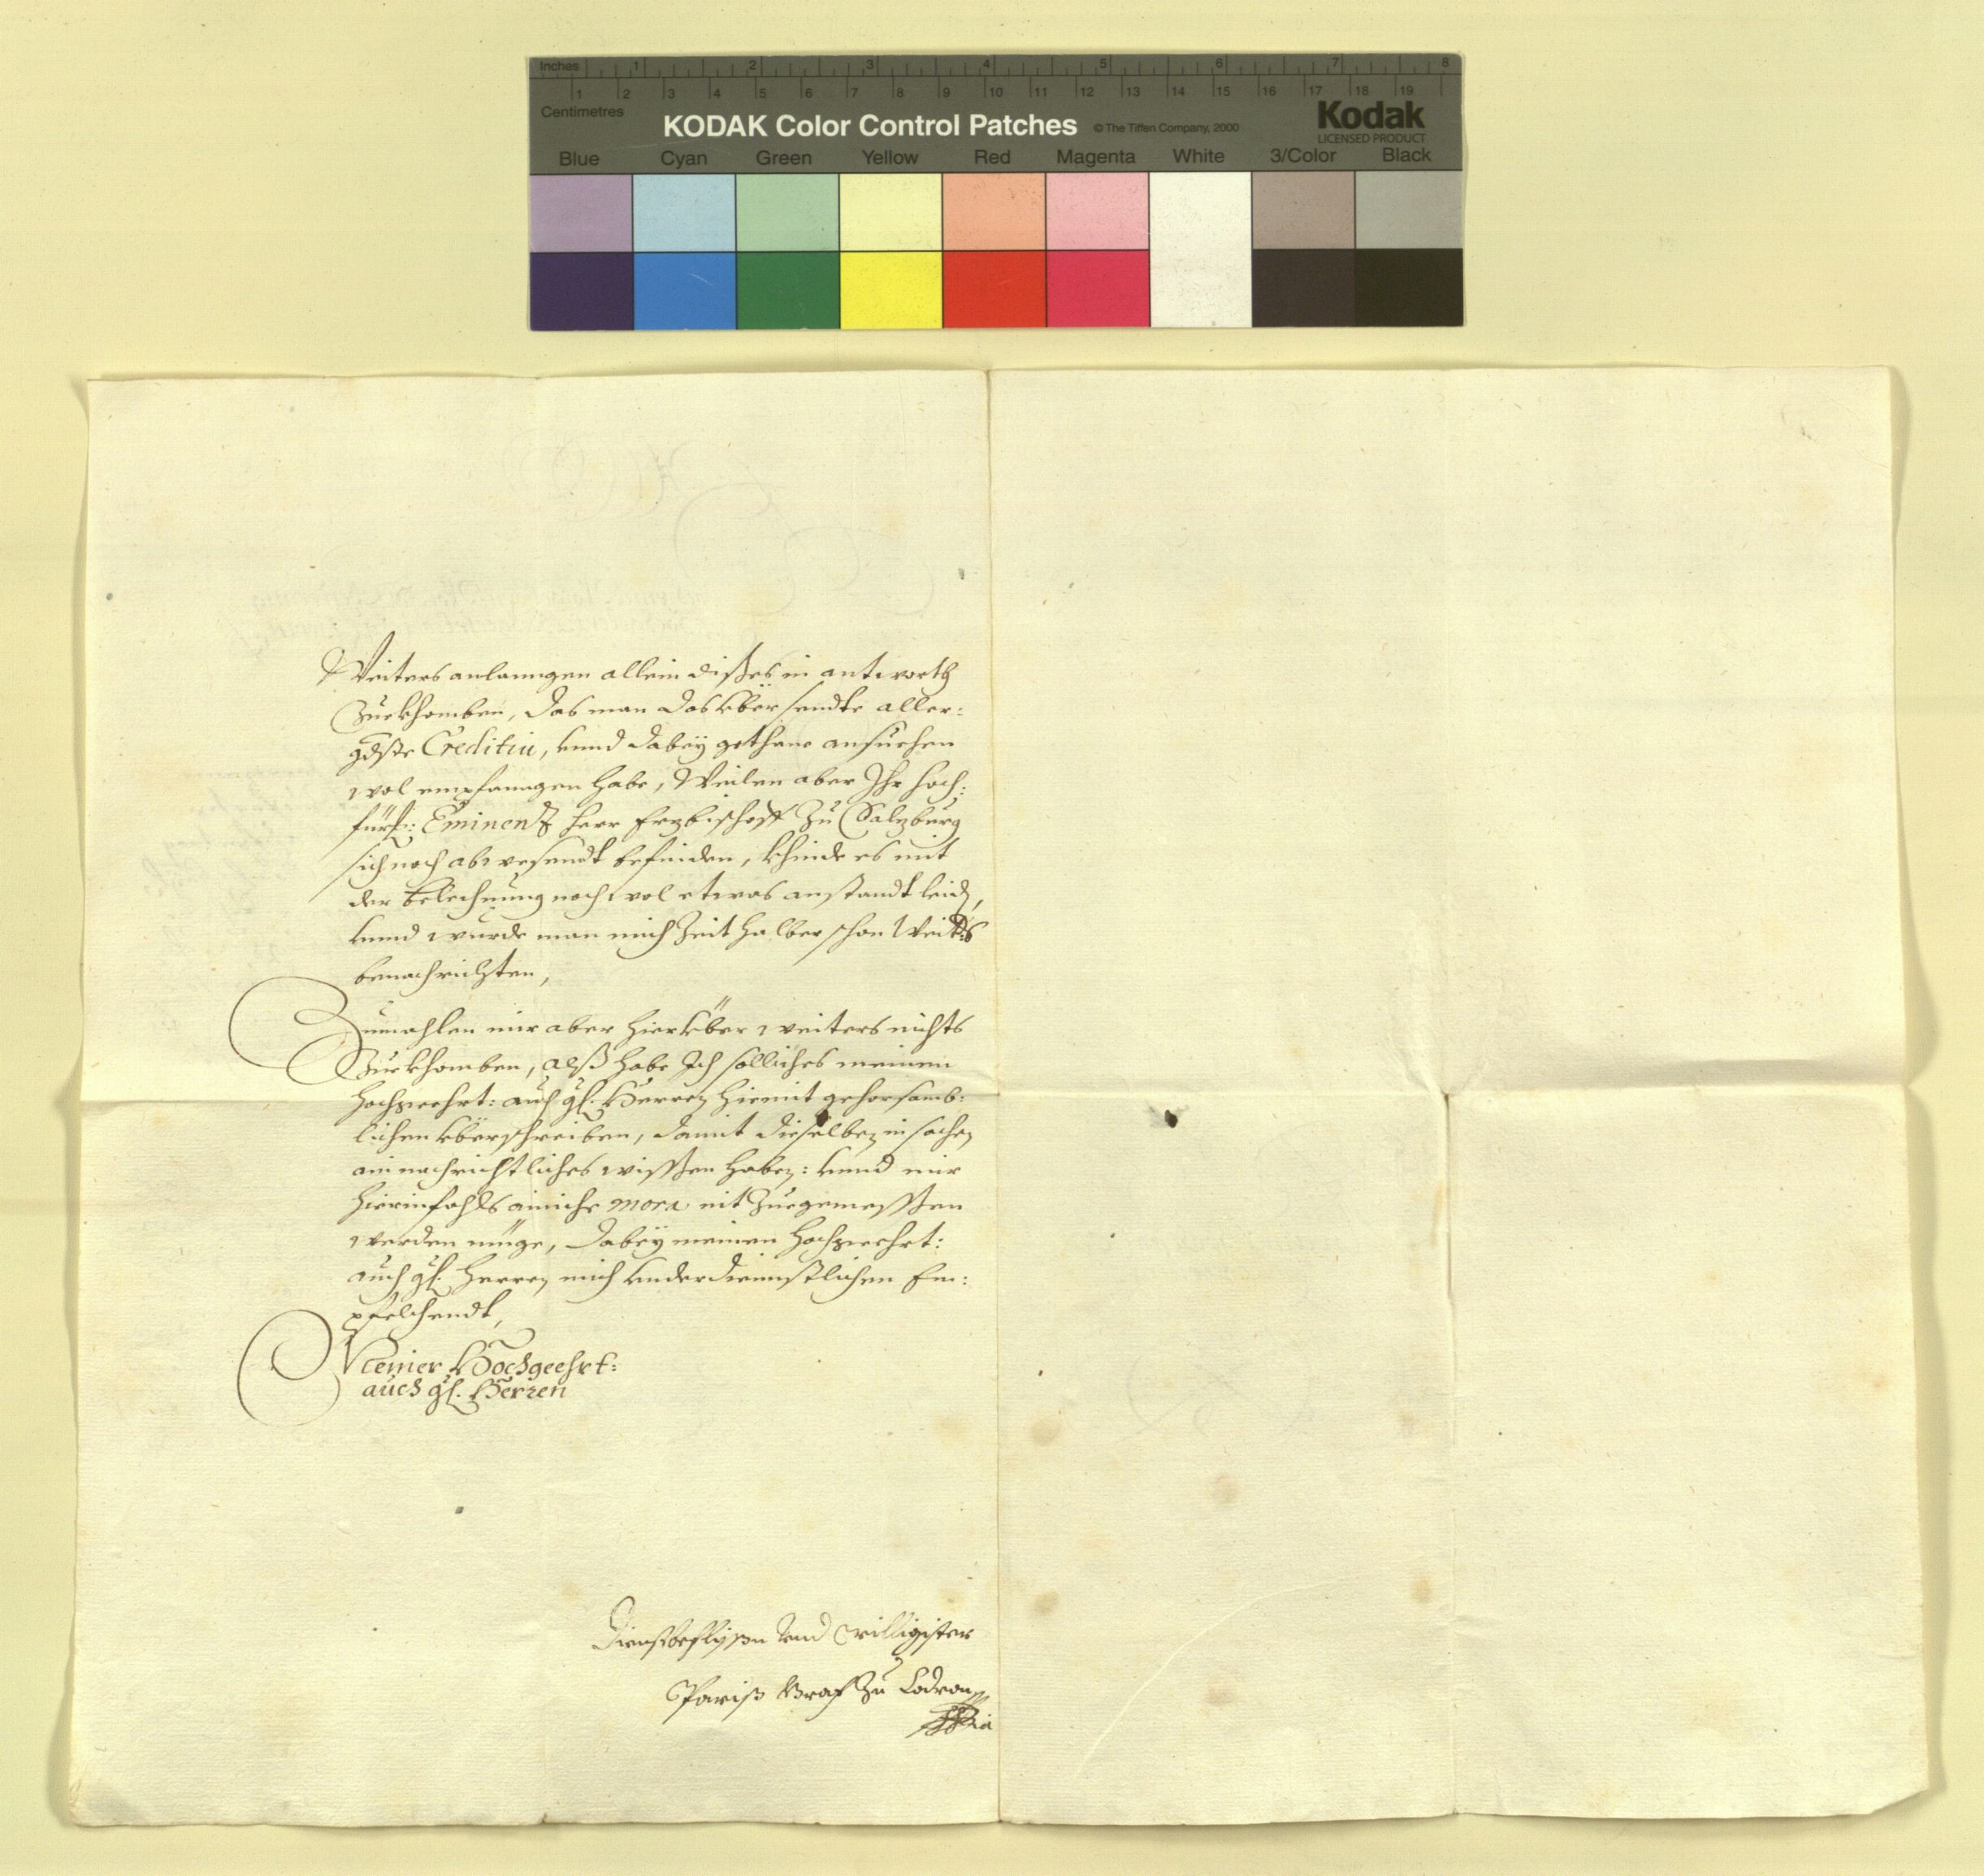 Inches 1 2 3 4 5 6 7 8
1 2 3 4 5 6 7 8 9 10 11 12 13 14 15 16 17 18 19
Centimetres
KODAK Color Control Patches © The Tiffen Company, 2000 Kodak
LICENSED PRODUCT
Blue Cyan Green Yellow Red Magenta White 3/Color Black
Weiters anlanngen allein dißes in antworth
Zuekhomben, das man das vbersendte aller:
gdste Creditiu, vnnd dabeÿ gethane ansuechen
wol empfanngen habe, Weilen aber Ihr hoch:
fürstl: Eminenz herr Erzbischoff zu Salzburg
sich noch abwesendt befinden, khinde es mit
der belechnung noch wol etwas anstandt leid,
vnnd wurde man mich Zeit halber schon Weiters
benachrichten,
Zumahlen mir aber hierüber weiters nichts
Zuekhomben, alß habe Ich solliches meinen
hochgeehrt: auch gl. Herren hiemit gehorsamb:
lichen überschreiben, damit dieselben in sachen
ain nachrichtliches wissen haben: vnnd mir
hierinfahls ainiche mora nit Zuegemessen
werden müge, Dabeÿ meinen hochgeehrt:
auch gl. Herren mich vnderdiennstlichen Em:
pfelchendt,
Meiner Hochgeehrt:
auch gl. Herren
Dienstbeflissen vnd willigister
Pariß Graf zu Lodron